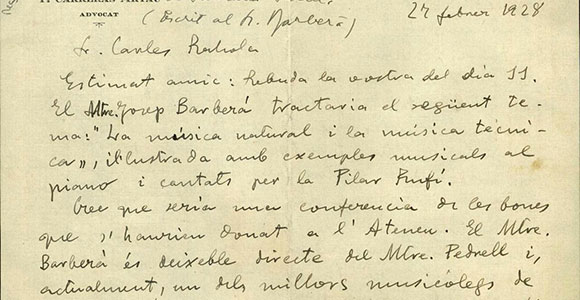 T. CARRERAS ARTAU
ADVOCAT
(Escrit al M. Barberà)
27 febrer 1928
Sr. Carles Rahola
Estimat amic: Rebuda la vostra del dia 11.
El Mtre. Josep Barberá tractaria el següent te-
ma: "La música natural i la música tècni-
ca», il·lustrada amb exemples musicals al
piano i cantats per la Pilar Rufí.
Crec que seria una conferencia de les bones
que s'haurien donat a l'Ateneu. El Mtre.
Barberà és deixeble directe del Mtre. Pedrell i,
actualment, un dels millors musicólegs de